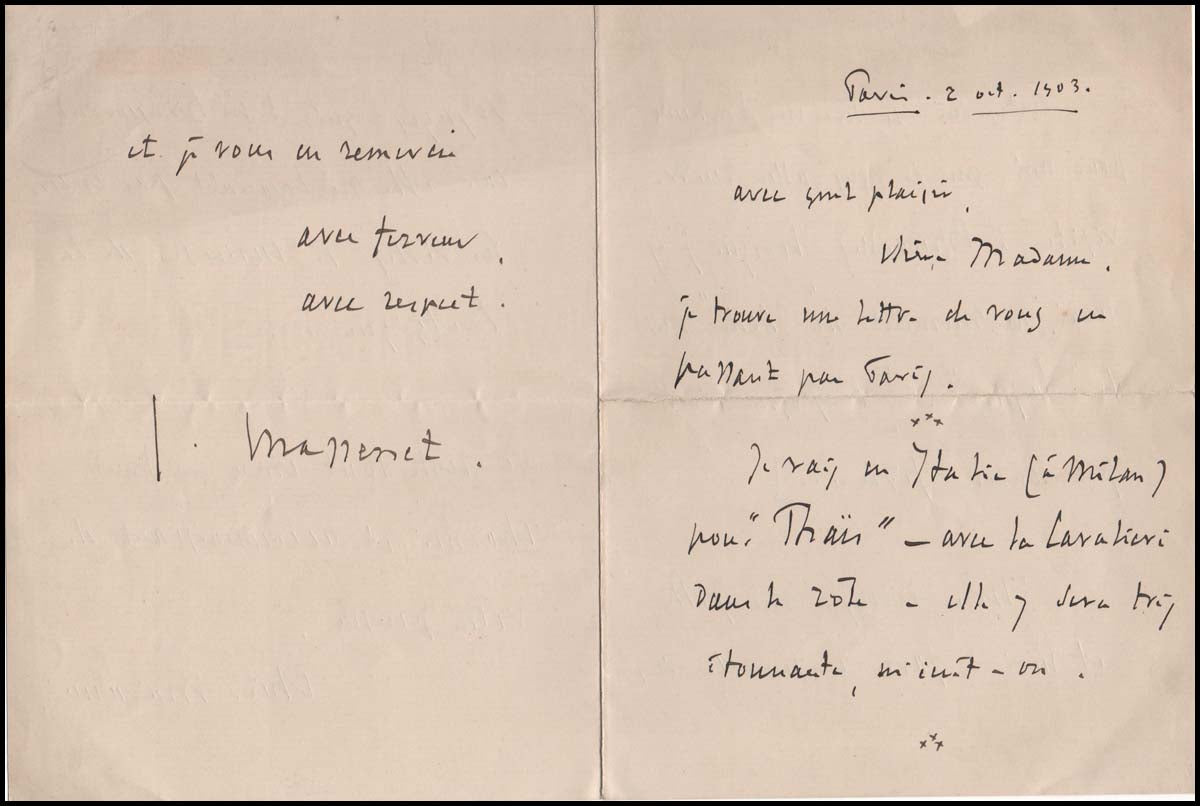 Paris. 2 oct. 1903.
avec quel plaisir,
chère Madame,
je trouve une lettre de vous en
passant par Paris.
xxx
Je vais en Italie (à Milan)
pour "Thaïs" – avec la Cavalieri
dans le rôle – elle y sera très
étonnante, m'écrit-on.
xxx
et je vous en remercie
avec ferveur,
avec respect.
J. Massenet.